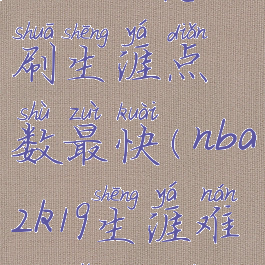 shuā shēng yá diǎn
刷生涯点
shù zuì kuài
数最快(nba
shēng yá nán
2k19生涯难